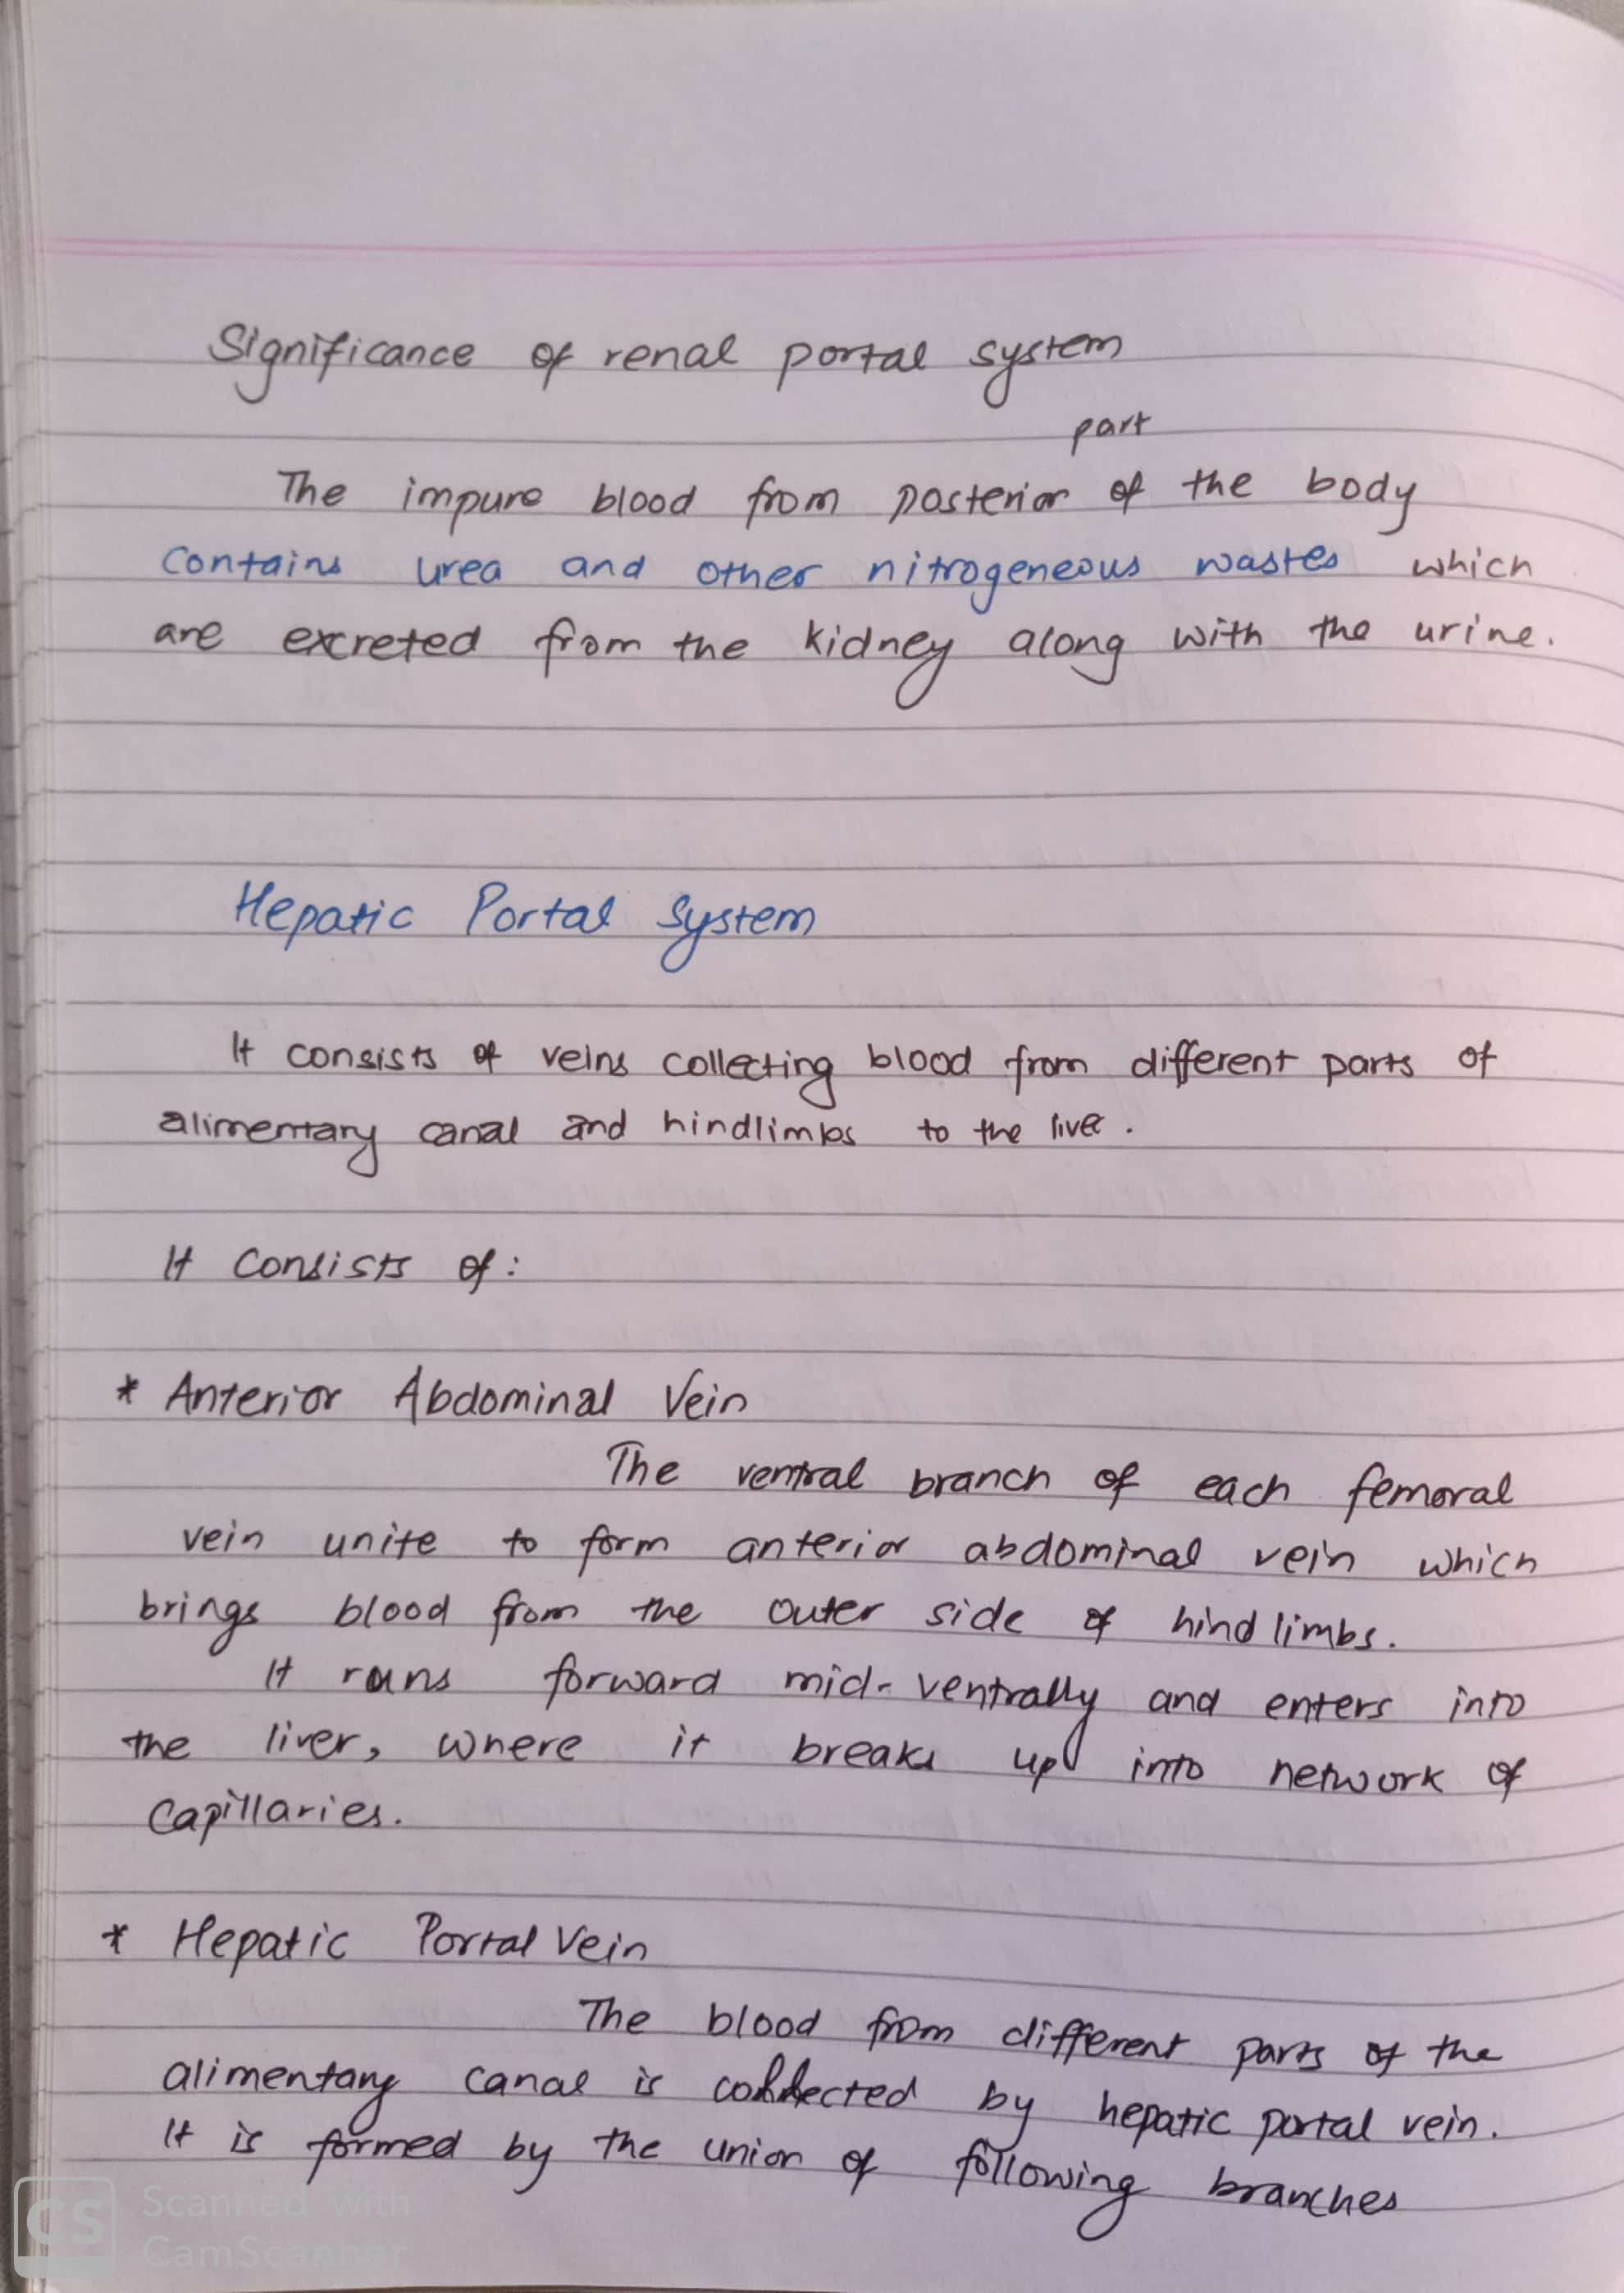 Significance of renal portal system
part
The impure blood from posterior of the body
contains urea and other nitrogeneous wastes which
are excreted from the kidney along with the urine.
Hepatic Portal System
It consists of veins collecting blood from different parts of
alimentary canal and hindlimbs to the liver.
It consists of:
* Anterior Abdominal Vein
The ventral branch of each femoral
vein unite to form anterior abdominal vein which
brings blood from the outer side of hind limbs.
It runs forward mid-ventrally and enters into
the liver, where it breaks up into network of
capillaries.
* Hepatic Portal Vein
The blood from different parts of the
alimentary canal is collected by hepatic portal vein.
It is formed by the union of following branches
CS Scanned with
CamScanner